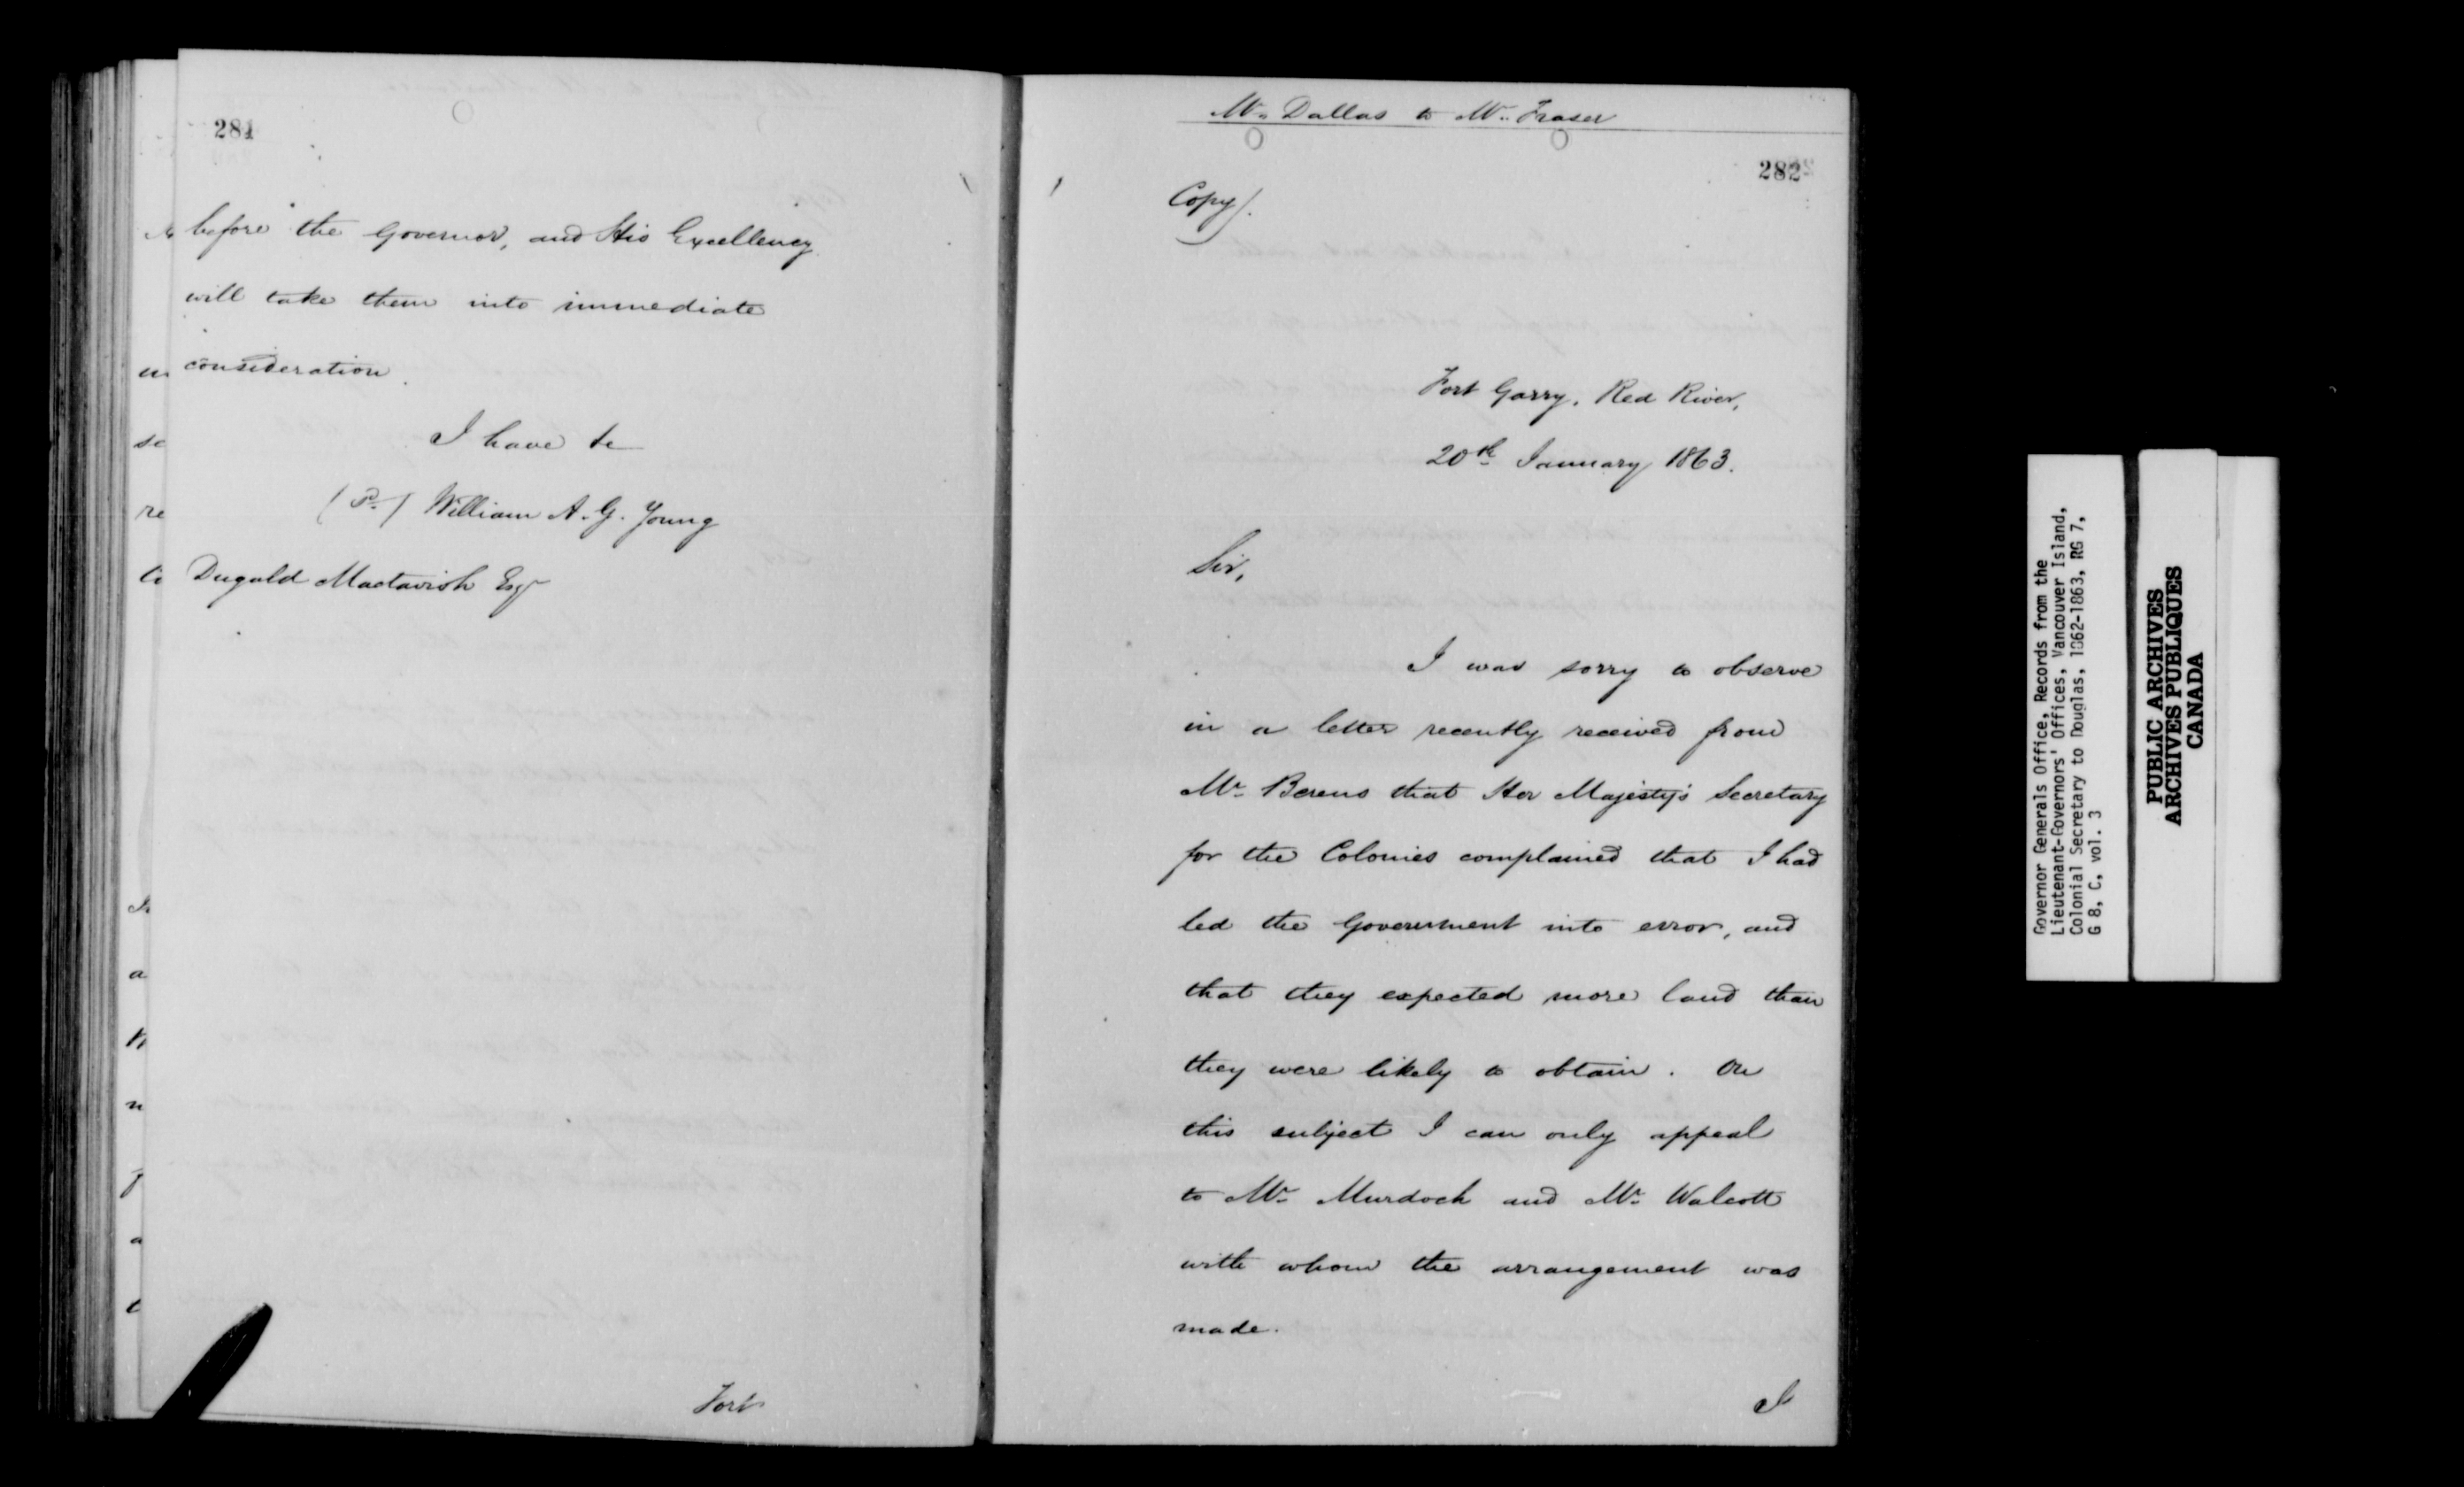 281
before the Governor, and His Excellency
will take them into immediate
consideration.
I have &c
William A. G. Young
Dugald Mactavish Esqr
Fort
Mr. Dallas to Mr. Fraser
282
Copy/.
Fort Garry, Red River,
20th January 1863.
Sir,
I was sorry to observe
in a letter recently received from
Mr. Berens that Her Majesty's Secretary
for the Colonies complained that I had
led the Government into error, and
that they expected more land than
they were likely to obtain. On
this subject I can only appeal
to Mr. Murdoch and Mr. Walcott
with whom the arrangement was
made.
I
Governor Generals Office, Records from the
Lieutenant-Governors' Offices, Vancouver Island,
Colonial Secretary to Douglas, 1862-1863, RG 7,
G 8, C, vol. 3
PUBLIC ARCHIVES
ARCHIVES PUBLIQUES
CANADA